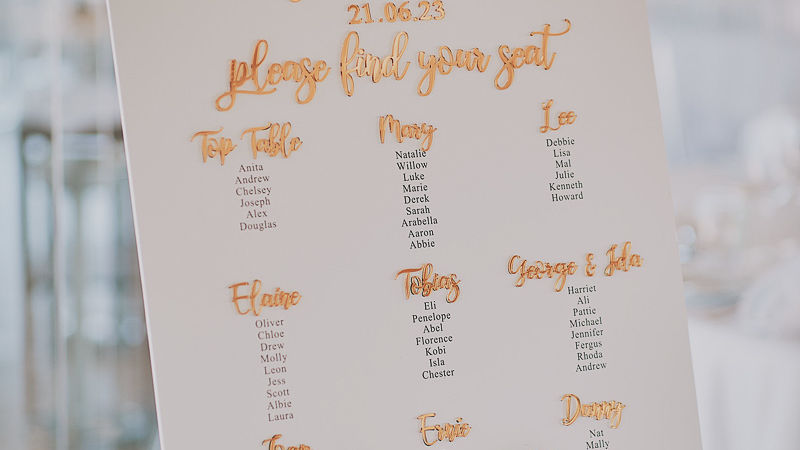 21.06.23
please find your seat
Top Table
Anita
Andrew
Chelsey
Joseph
Alex
Douglas
Mary
Natalie
Willow
Luke
Marie
Derek
Sarah
Arabella
Aaron
Abbie
Lee
Debbie
Lisa
Mal
Julie
Kenneth
Howard
Elaine
Oliver
Chloe
Drew
Molly
Leon
Jess
Scott
Albie
Laura
Tobias
Eli
Penelope
Abel
Florence
Kobi
Isla
Chester
George & Ida
Harriet
Ali
Pattie
Michael
Jennifer
Fergus
Rhoda
Andrew
Ernie
Danny
Nat
Mally